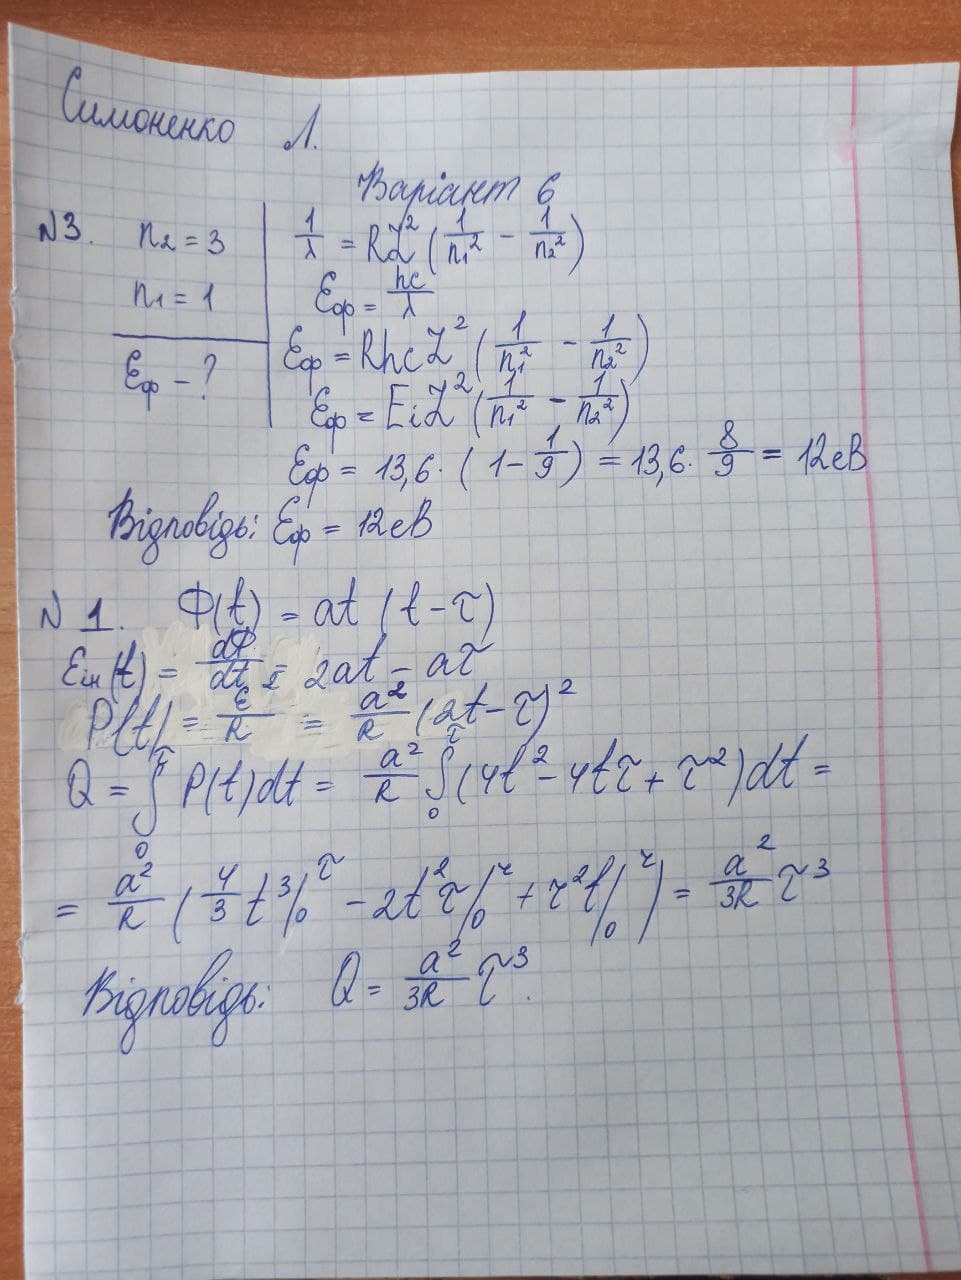 Симоненко Л.
Варіант 6
№3. n₂ = 3
n₁ = 1
Eф - ?
1/λ = RZ² (1/n₁² - 1/n₂²)
Eф = hc/λ
Eф = RhcZ² (1/n₁² - 1/n₂²)
Eф = EiZ² (1/n₁² - 1/n₂²)
Eф = 13,6 · (1 - 1/9) = 13,6 · 8/9 = 12 еВ
Відповідь: Eф = 12 еВ
№ 1. Ф(t) = at (t - τ)
Eін(t) = dФ/dt = 2at - aτ
P(t) = ε/R = a²/R (2t - τ)²
Q = ∫₀^τ P(t)dt = a²/R ∫₀^τ (4t² - 4tτ + τ²)dt =
= a²/R (4/3 t³|₀^τ - 2t²τ|₀^τ + τ²t|₀^τ) = a²/3R τ³
Відповідь: Q = a²/3R τ³.